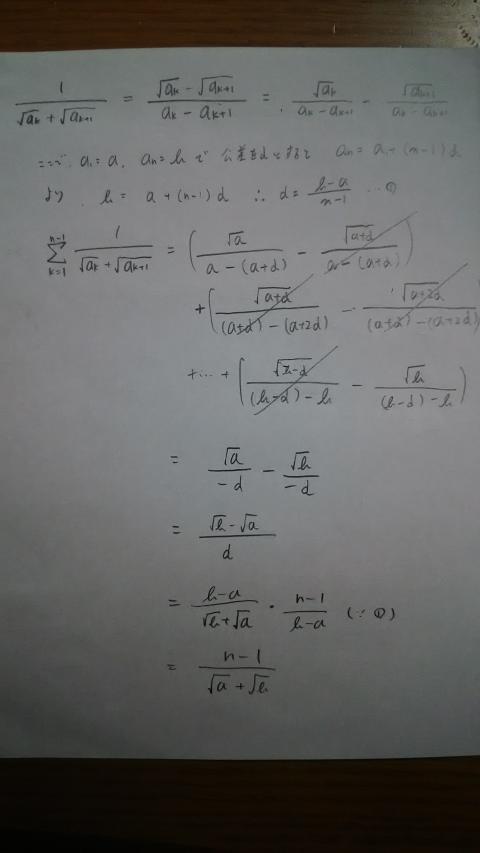 1/(√a_k + √a_{k+1}) = (√a_k − √a_{k+1})/(a_k − a_{k+1}) = √a_k/(a_k − a_{k+1}) − √a_{k+1}/(a_k − a_{k+1})
ここで、a₁ = a, a_n = b で 公差をdとすると a_n = a₁ + (n−1)d
より、b = a + (n−1)d ∴ d = (b−a)/(n−1) …①
∑_{k=1}^{n−1} 1/(√a_k + √a_{k+1}) = (√a/(a − (a+d)) − √(a+d)/(a − (a+d)))
+ (√(a+d)/((a+d) − (a+2d)) − √(a+2d)/((a+d) − (a+2d)))
+ … + (√(b−d)/((b−d) − b) − √b/((b−d) − b))
= √a/−d − √b/−d
= (√b − √a)/d
= (b−a)/(√b + √a) · (n−1)/(b−a) (∵ ①)
= (n−1)/(√a + √b)